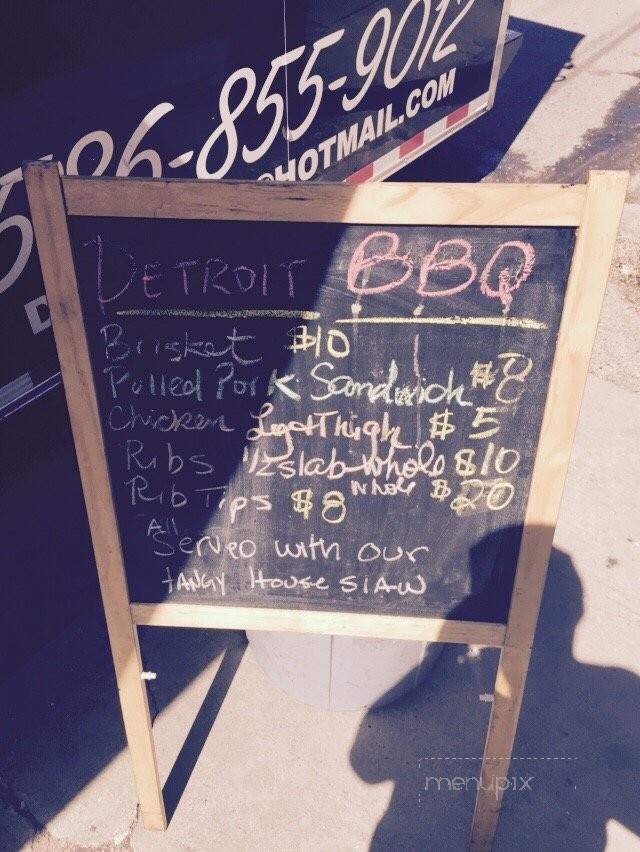 86-855-9012
HOTMAIL.COM
DETROIT BBQ
Brisket $10
Pulled Pork Sandwich $8
Chicken Leg + Thigh $5
Ribs 1/2 slab Whole $10
Rib Tips $8 Whole $20
All
Served with our
TANGY House SLAW
menupix